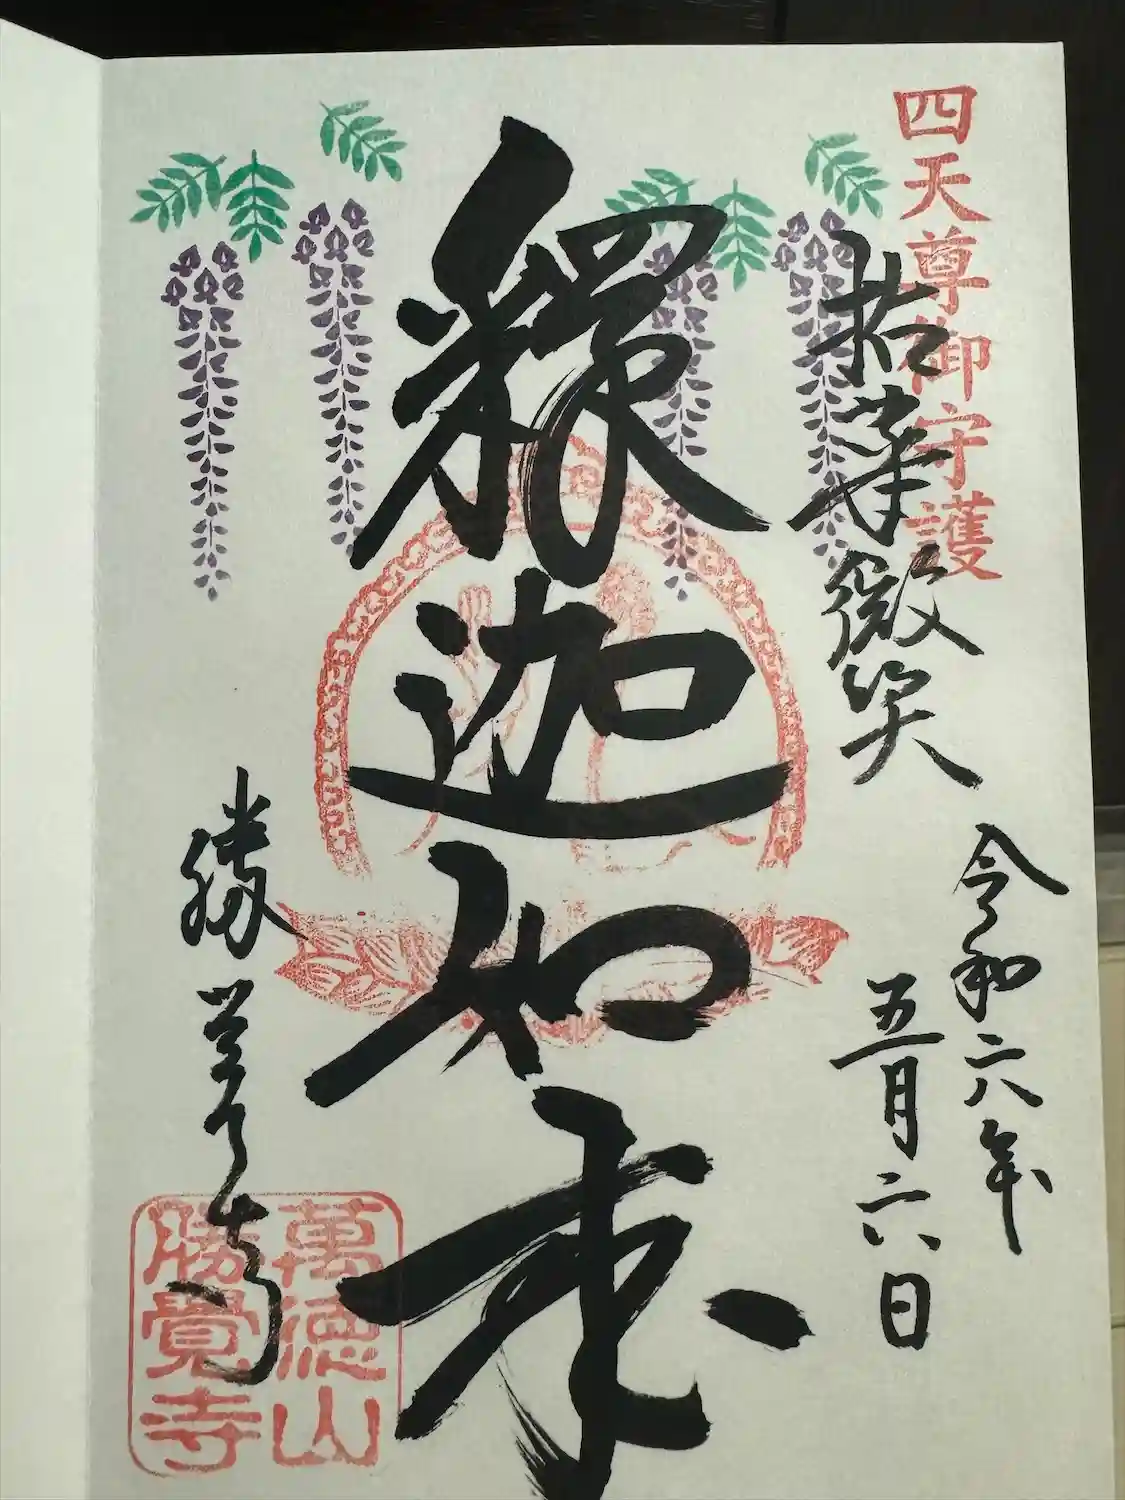 四天尊御守護
拈華微笑
令和六年
五月六日
釋迦如来
勝覺寺
萬徳山
勝覺寺